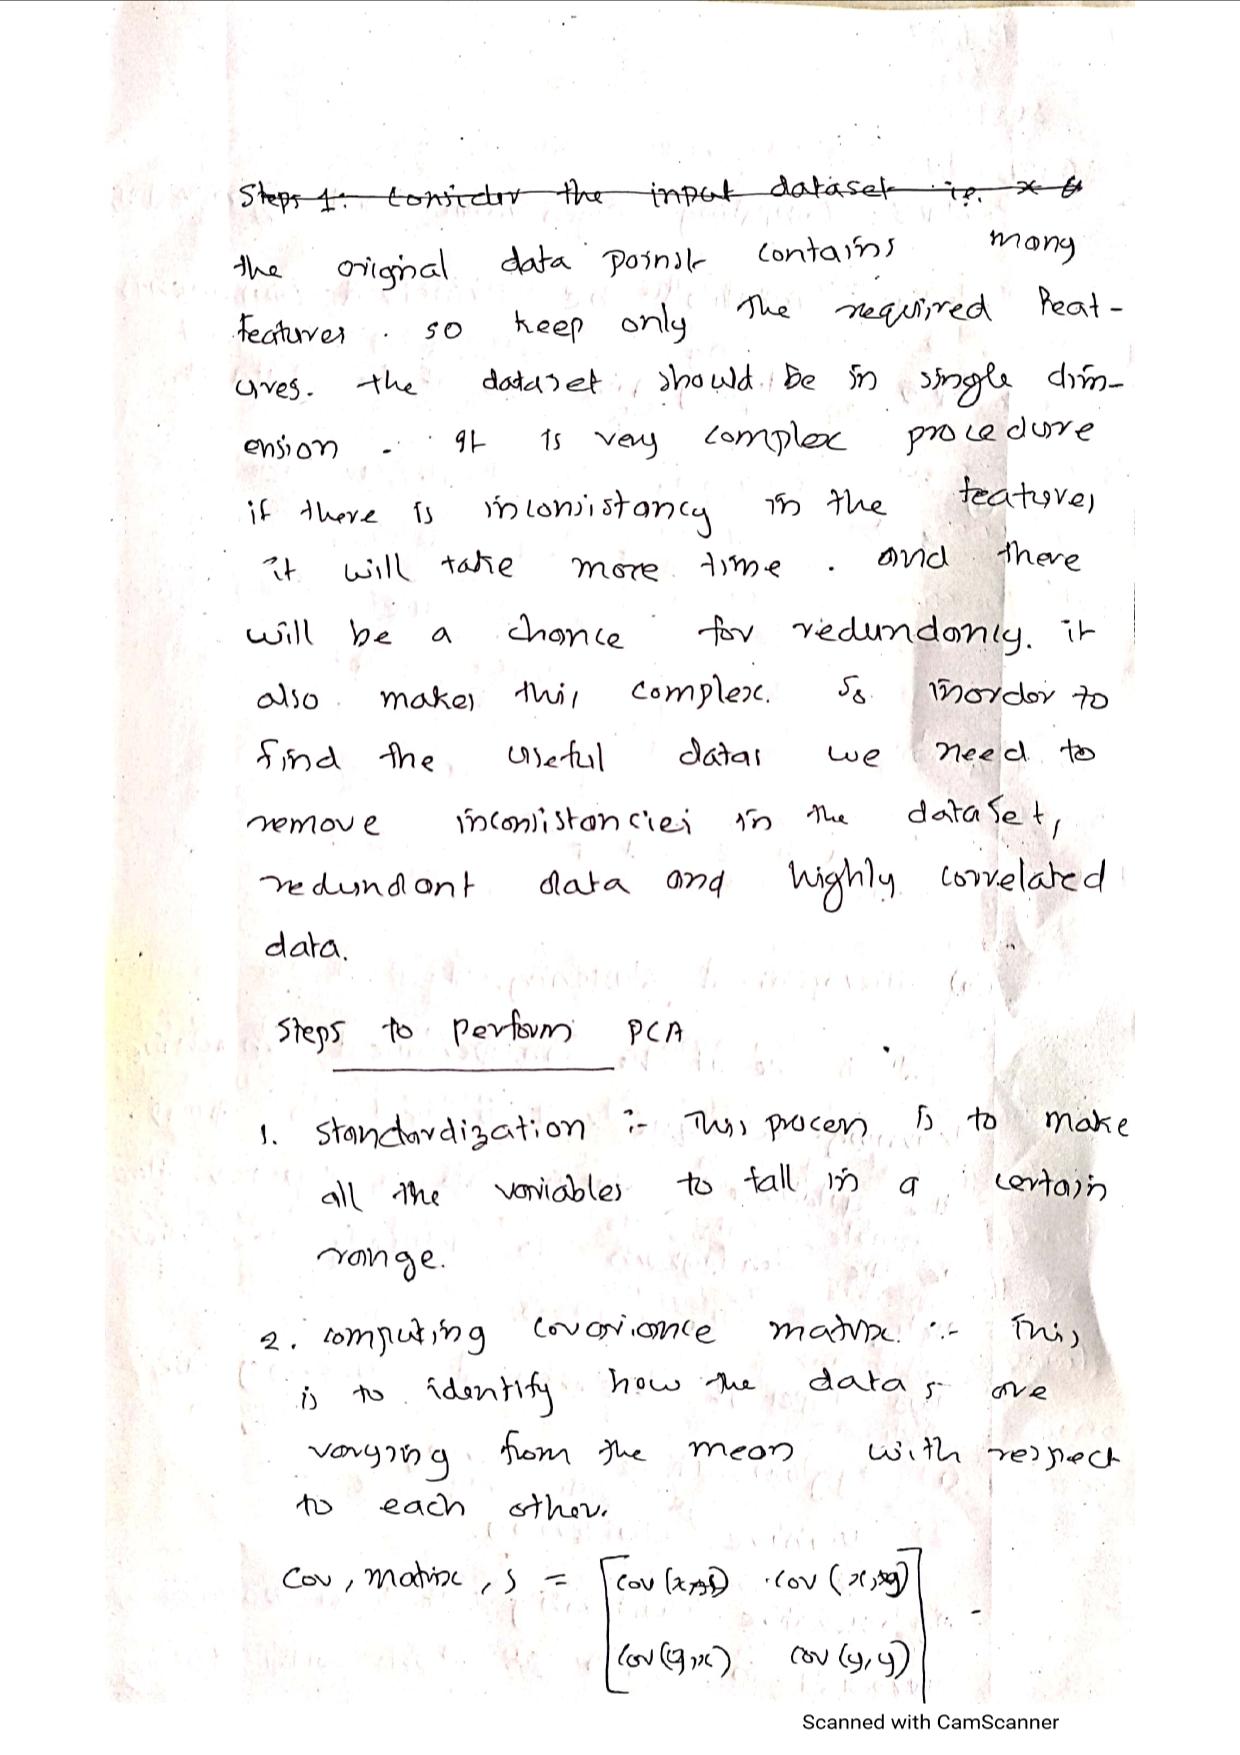 Steps 1: Consider the input dataset ie. x
the original data points contains many
features. so keep only the required feat-
ures. the dataset should be in single dim-
ension. It is very complex procedure
if there is inconsistancy in the features
it will take more time. and there
will be a chance for redundancy. it
also makes this complex. So inorder to
find the useful datas we need to
remove inconsistancies in the dataset,
redundant data and highly correlated
data.
Steps to perform PCA
1. Standardization :- This process is to make
all the variables to fall in a certain
range.
2. computing covariance matrix :- This
is to identify how the datas are
varying from the mean with respect
to each other.
Cov, matrix, S = [cov(x,x) cov(x,y)
cov(y,x) cov(y,y)]
Scanned with CamScanner